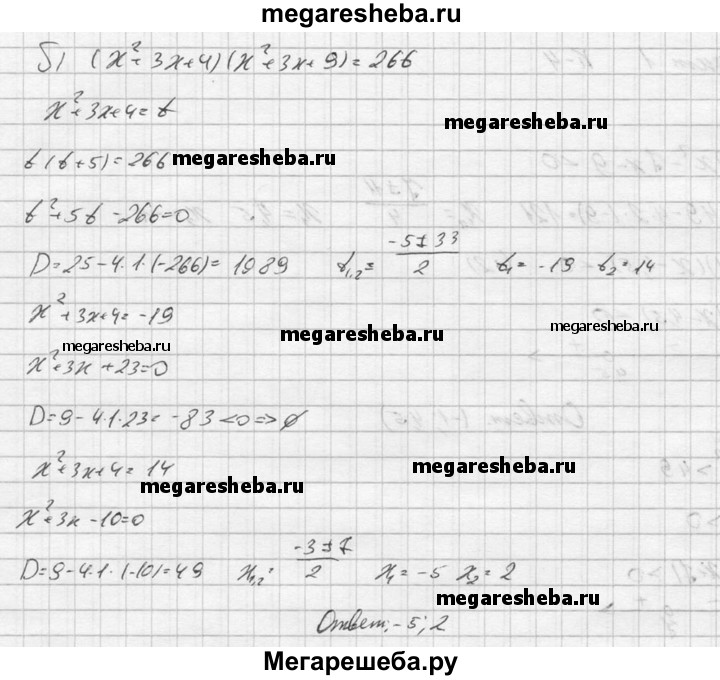 megaresheba.ru
б) (x²+3x+4)(x²+3x+9)=266
x²+3x+4=t
megaresheba.ru
t(t+5)=266 megaresheba.ru
t²+5t-266=0
D=25-4·1·(-266)=1089 t₁,₂= (-5±33)/2 t₁=-19 t₂=14
x²+3x+4=-19
megaresheba.ru megaresheba.ru megaresheba.ru
x²+3x+23=0
D=9-4·1·23=-83<0=>∅
x²+3x+4=14 megaresheba.ru
megaresheba.ru
x²+3x-10=0
D=9-4·1·(-10)=49 x₁,₂= (-3±7)/2 x₁=-5 x₂=2
megaresheba.ru
Ответ: -5; 2
Мегарешеба.ру